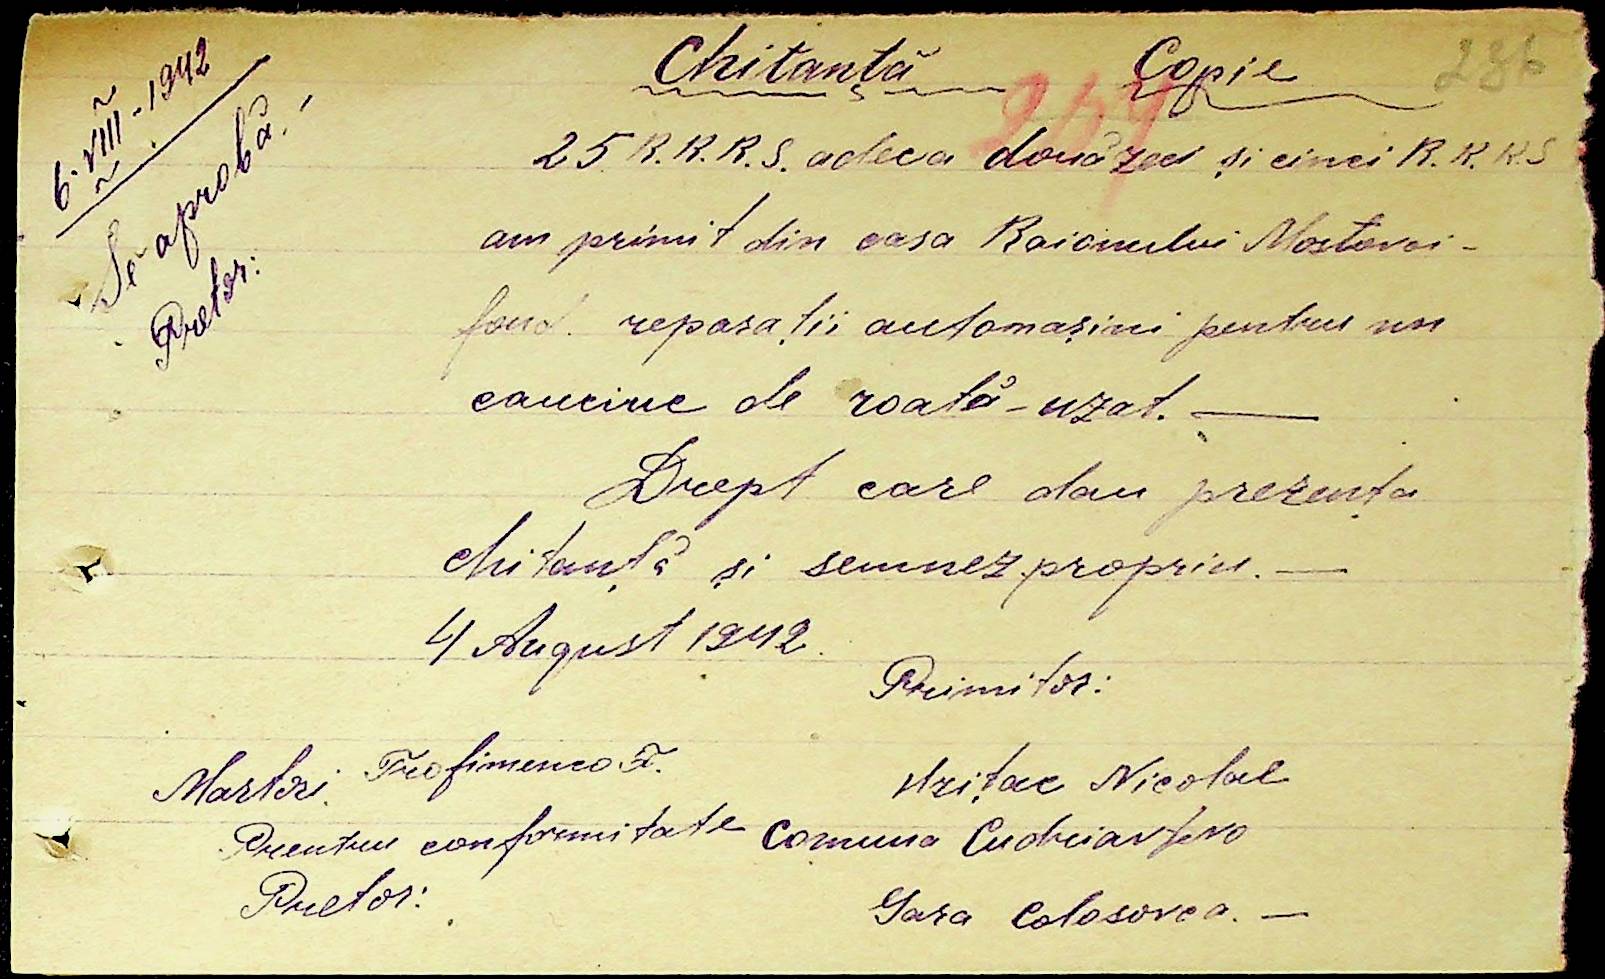 6.VIII.1942
Se aprobă.-
Pretor:
Chitanță Copie
236
264
25 R.K.K.S. adeca douăzeci și cinci R.K.K.S
am primit din casa Raionului Mostovoi-
fond. reparații automașini pentru un
cauciuc de roată-uzat.—
Drept care dau prezenta
chitanță și semnez propriu.—
4 August 1942.
Primitor:
Martori Trofimenco T. Urițac Nicolae
Pentru conformitate Comuna Cudriavțevo
Pretor: Gara Colosovca.—